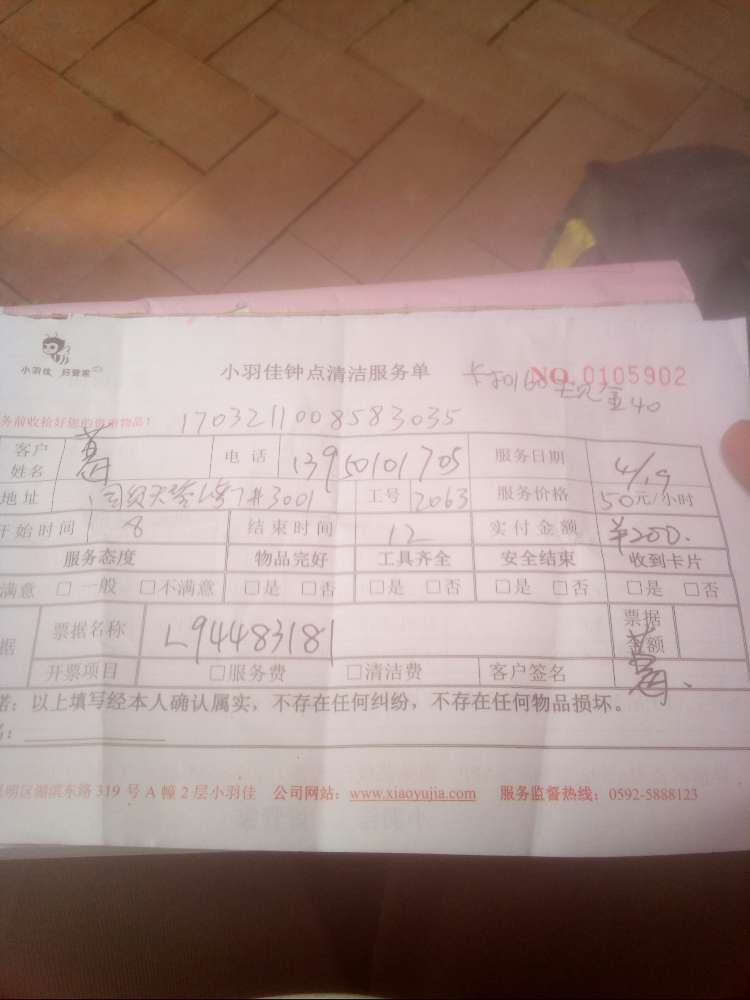 小羽佳 好管家
小羽佳钟点清洁服务单
NO. 0105902
卡扣160 现金40
务前收拾好您的贵重物品!
1703211008583035
客户姓名 电话 13950101705 服务日期 4/19
地址 国贸天琴湾7#3001 工号 2063 服务价格 50元/小时
开始时间 8 结束时间 12 实付金额 ¥200.
服务态度 物品完好 工具齐全 安全结束 收到卡片
满意 □ 一般 □不满意 □是 □否 □是 □否 □是 □否 □是 □否
据 票据名称 L94483181 票据金额
开票项目 □服务费 □清洁费 客户签名
诺:以上填写经本人确认属实,不存在任何纠纷,不存在任何物品损坏。
明区湖滨东路 319 号 A 幢 2 层小羽佳 公司网站:www.xiaoyujia.com 服务监督热线:0592-5888123